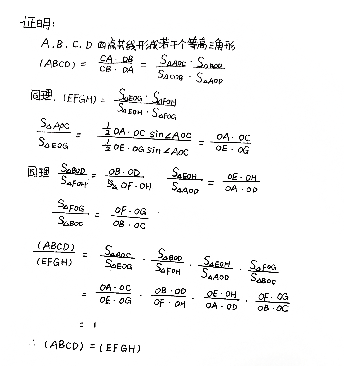 证明:
A.B.C.D 四点共线形成若干个等高三角形
(ABCD) = CA·DB / CB·DA = S△AOC·S△BOD / S△BOC·S△AOD
同理. (EFGH) = S△EOG·S△FOH / S△EOH·S△FOG
S△AOC / S△EOG = ½OA·OC sin∠AOC / ½OE·OG sin∠AOC = OA·OC / OE·OG
同理 S△BOD / S△FOH = OB·OD / OF·OH S△EOH / S△AOD = OE·OH / OA·OD
S△FOG / S△BOC = OF·OG / OB·OC
(ABCD) / (EFGH) = S△AOC / S△EOG · S△BOD / S△FOH · S△EOH / S△AOD · S△FOG / S△BOC
= OA·OC / OE·OG · OB·OD / OF·OH · OE·OH / OA·OD · OF·OG / OB·OC
= 1
∴ (ABCD) = (EFGH)